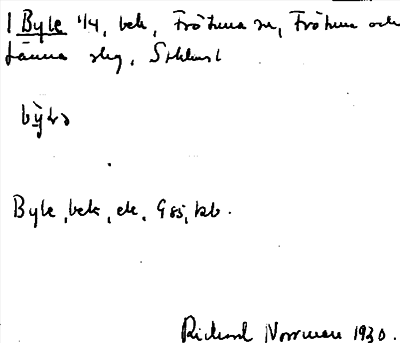 1 Byle 1/4, bek, Frötuna sn, Frötuna och
Länna skg, Sthlms l
Byle, bek, ek. G 85, kb.
Richard Norrman 1930.